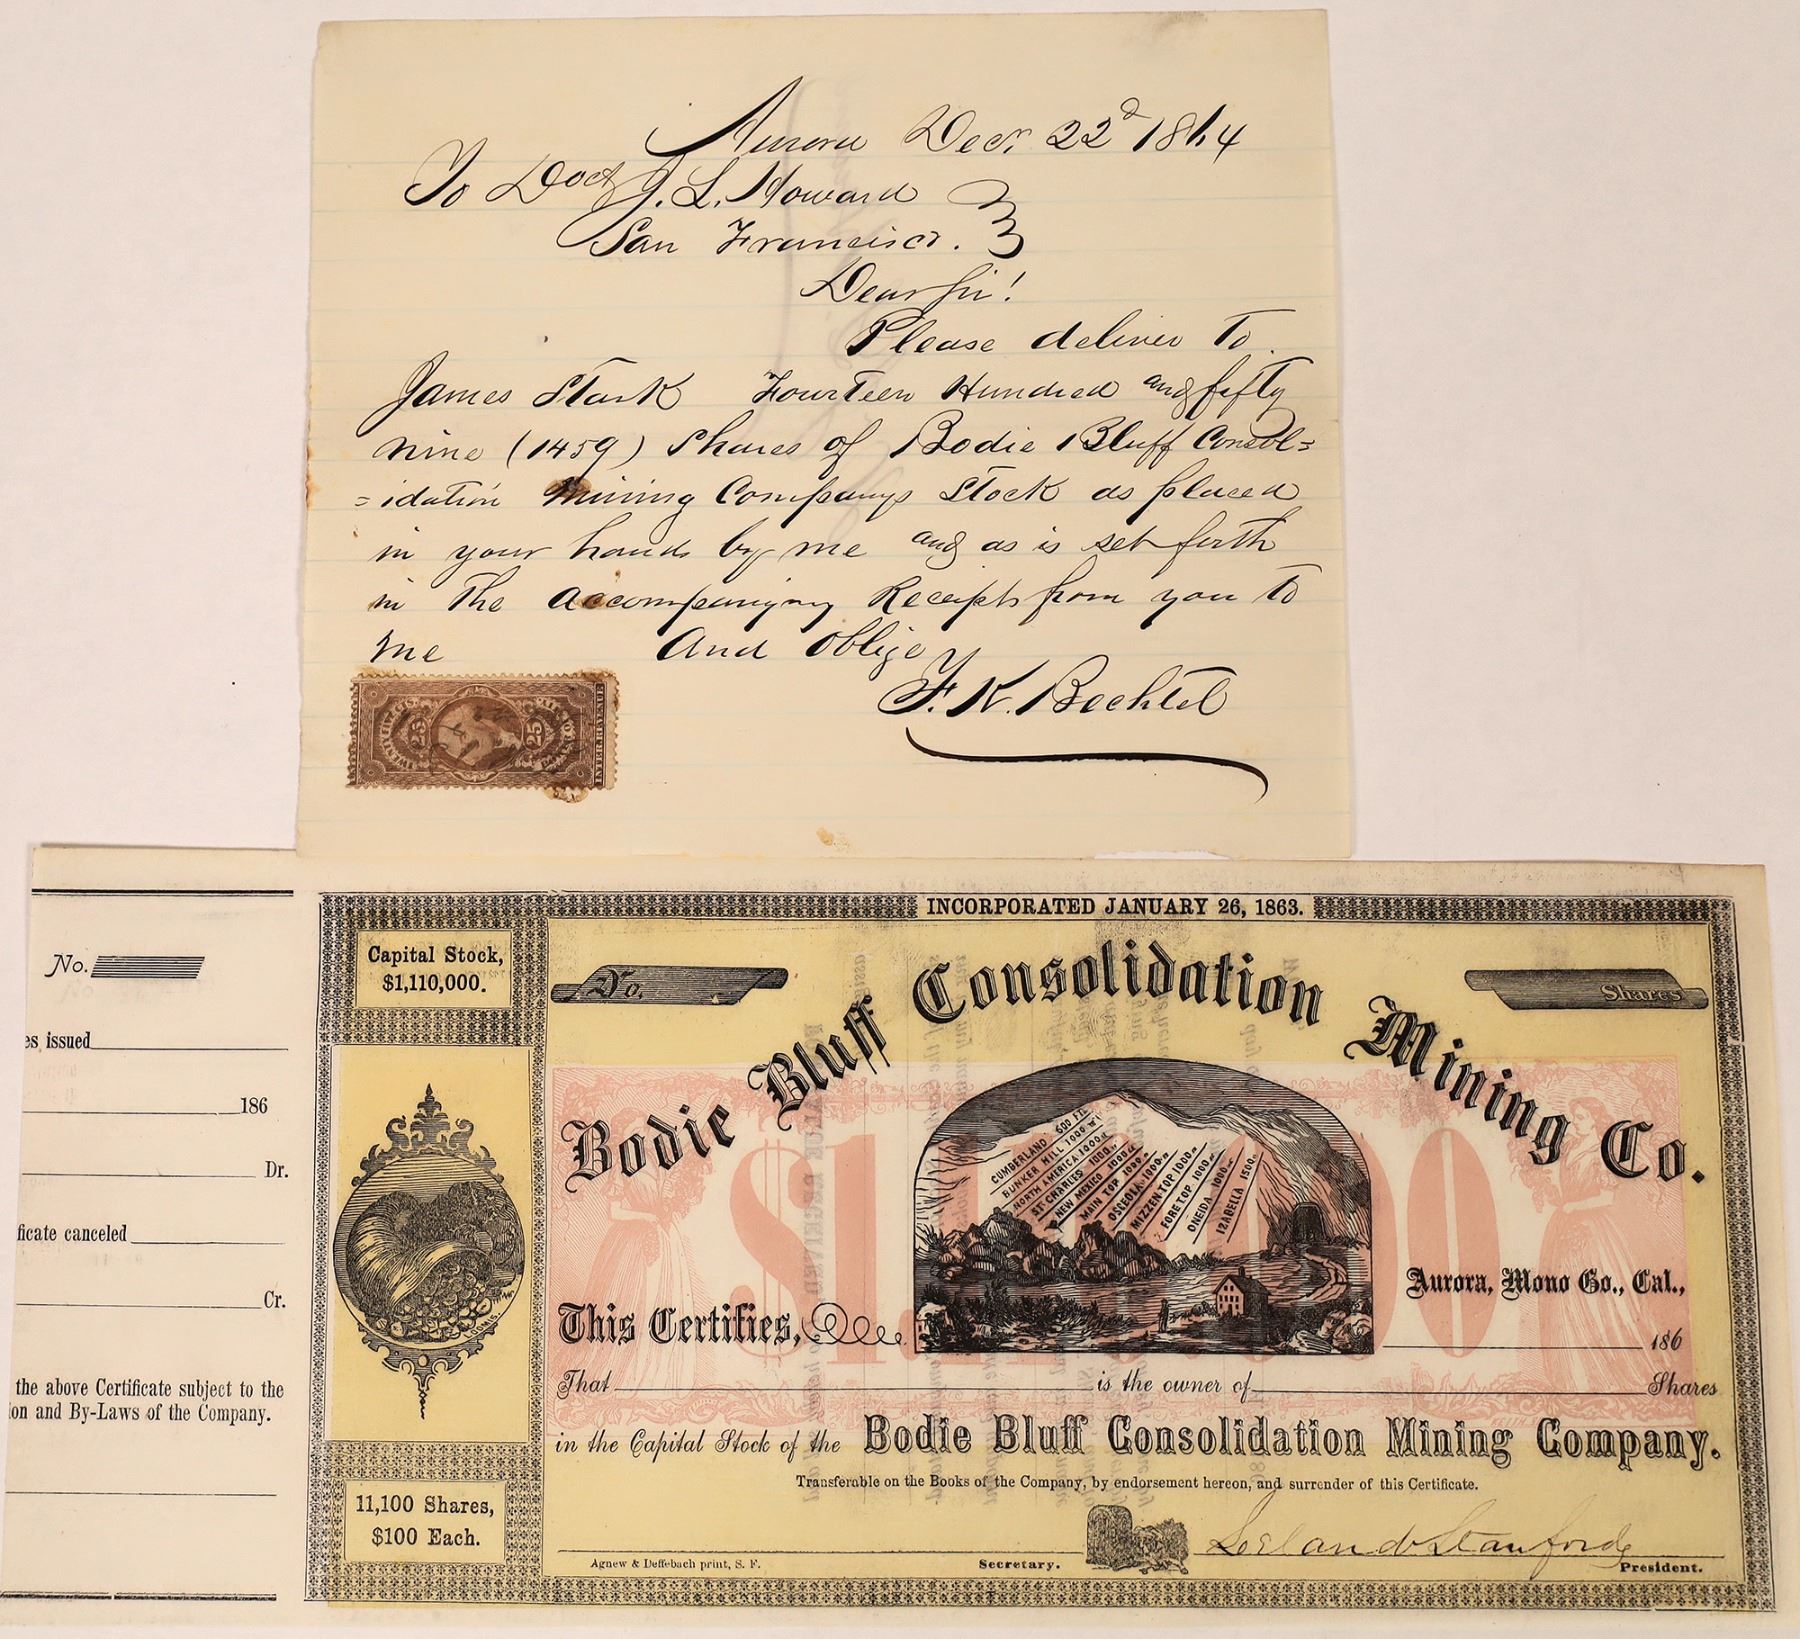 Aurora Decr. 22d 1864
To Doct J. L. Howard
San Francisco.
Dear Sir!
Please deliver to
James Stark Fourteen Hundred and fifty
nine (1459) Shares of Bodie Bluff Consol=
=idation Mining Companys Stock as placed
in your hands by me and as is set forth
in the accompanying Receipts from you to
me And oblige
F. K. Bechtel
25 25
INTER. REVENUE
INCORPORATED JANUARY 26, 1863.
No.
es issued
186
Dr.
ficate canceled
Cr.
the above Certificate subject to the
ion and By-Laws of the Company.
Capital Stock,
$1,110,000.
LOOMIS
11,100 Shares,
$100 Each.
No.
Shares
Bodie Bluff Consolidation Mining Co.
$1,110,000
CUMBERLAND 600 FT.
BUNKER HILL 1000
NORTH AMERICA 1000
ST. CHARLES 1000
NEW MEXICO 1000
MAIN TOP 1000
OSCEOLA 1000
MIZZEN TOP 1000
FORE TOP 1000
ONEIDA 1000
IZABELLA 1500
Aurora, Mono Co., Cal.,
This Certifies,
186
That is the owner of Shares
in the Capital Stock of the Bodie Bluff Consolidation Mining Company.
Transferable on the Books of the Company, by endorsement hereon, and surrender of this Certificate.
Leland Stanford
Agnew & Deffebach print, S. F.
Secretary.
President.